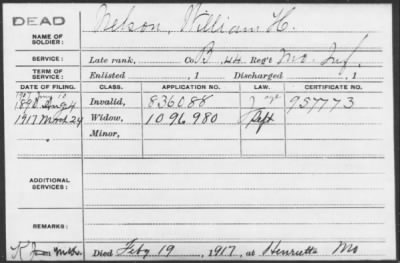 DEAD
NAME OF SOLDIER: Nelson, William H.
SERVICE: Late rank, Co. B, 44 Reg't Mo. Inf.
TERM OF SERVICE: Enlisted , 1 Discharged , 1
DATE OF FILING. CLASS. APPLICATION NO. LAW. CERTIFICATE NO.
1890 Aug 4 Invalid, 836088 957773
1917 Mar 24 Widow, 1096980
Minor,
ADDITIONAL SERVICES:
REMARKS:
Died Feby 19, 1917, at Henrietta Mo